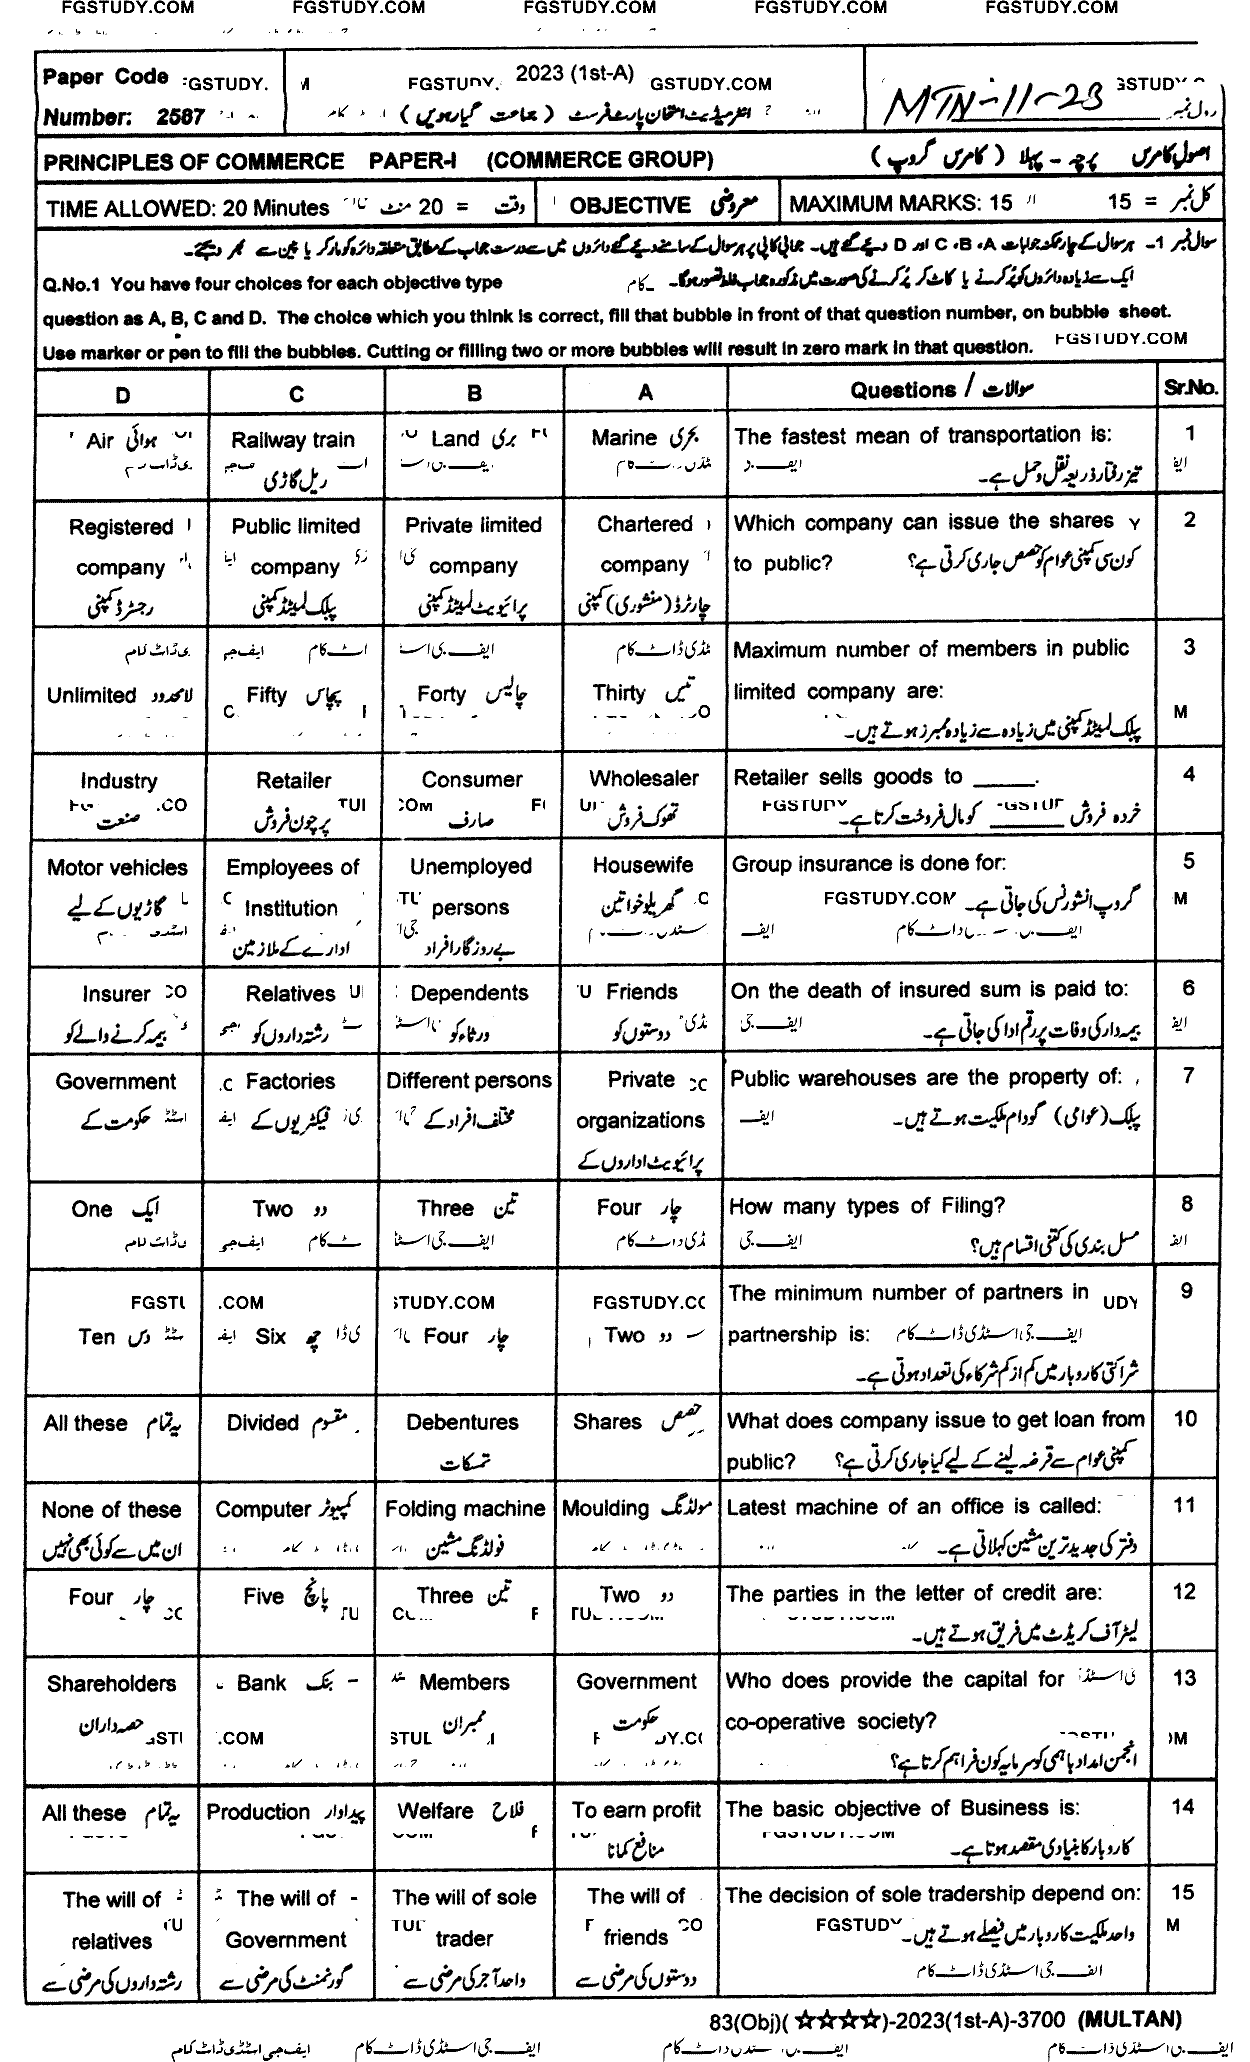 FGSTUDY.COM FGSTUDY.COM FGSTUDY.COM FGSTUDY.COM FGSTUDY.COM
Paper Code 2023 (1st-A) MTN-11-23 رول نمبر
Number: 2587 انٹرمیڈیٹ امتحان پارٹ فرسٹ ( جماعت گیارہویں )
PRINCIPLES OF COMMERCE PAPER-I (COMMERCE GROUP) اصولِ کامرس پرچہ - پہلا ( کامرس گروپ )
TIME ALLOWED: 20 Minutes وقت = 20 منٹ OBJECTIVE معروضی MAXIMUM MARKS: 15 کل نمبر = 15
سوال نمبر 1- ہر سوال کے چار ممکنہ جوابات A، B، C اور D دیئے گئے ہیں۔ جوابی کاپی پر ہر سوال کے سامنے دیئے گئے دائروں میں سے درست جواب کے مطابق متعلقہ دائرہ کو مارکر یا پین سے بھر دیجئے۔
ایک سے زیادہ دائروں کو پُر کرنے یا کاٹ کر پُر کرنے کی صورت میں مذکورہ جواب غلط تصور ہوگا۔
Q.No.1 You have four choices for each objective type
question as A, B, C and D. The choice which you think is correct, fill that bubble in front of that question number, on bubble sheet.
Use marker or pen to fill the bubbles. Cutting or filling two or more bubbles will result in zero mark in that question. FGSTUDY.COM
D C B A Questions / سوالات Sr.No.
Air ہوائی Railway train Land بری Marine بحری The fastest mean of transportation is: 1
ریل گاڑی تیز رفتار ذریعہ نقل و حمل ہے۔
Registered Public limited Private limited Chartered Which company can issue the shares 2
company company company company to public? کون سی کمپنی عوام کو حصص جاری کرتی ہے؟
رجسٹرڈ کمپنی پبلک لمیٹڈ کمپنی پرائیویٹ لمیٹڈ کمپنی چارٹرڈ (منشوری) کمپنی
Maximum number of members in public 3
Unlimited لامحدود Fifty پچاس Forty چالیس Thirty تیس limited company are:
پبلک لمیٹڈ کمپنی میں زیادہ سے زیادہ ممبرز ہوتے ہیں۔
Industry Retailer Consumer Wholesaler Retailer sells goods to _____. 4
صنعت پرچون فروش صارف تھوک فروش خردہ فروش ______ کو مال فروخت کرتا ہے۔
Motor vehicles Employees of Unemployed Housewife Group insurance is done for: 5
گاڑیوں کے لیے Institution persons گھریلو خواتین FGSTUDY.COM گروپ انشورنس کی جاتی ہے۔
ادارے کے ملازمین بے روزگار افراد
Insurer Relatives Dependents Friends On the death of insured sum is paid to: 6
بیمہ کرنے والے کو رشتہ داروں کو ورثاء کو دوستوں کو بیمہ دار کی وفات پر رقم ادا کی جاتی ہے۔
Government Factories Different persons Private Public warehouses are the property of: 7
حکومت کے فیکٹریوں کے مختلف افراد کے organizations پبلک (عوامی) گودام ملکیت ہوتے ہیں۔
پرائیویٹ اداروں کے
One ایک Two دو Three تین Four چار How many types of Filing? 8
مسل بندی کی کتنی اقسام ہیں؟
The minimum number of partners in 9
Ten دس Six چھ Four چار Two دو partnership is:
شراکتی کاروبار میں کم از کم شرکاء کی تعداد ہوتی ہے۔
All these یہ تمام Divided مقسوم Debentures Shares حصص What does company issue to get loan from 10
تمسکات public? کمپنی عوام سے قرضہ لینے کے لیے کیا جاری کرتی ہے؟
None of these Computer کمپیوٹر Folding machine Moulding مولڈنگ Latest machine of an office is called: 11
ان میں سے کوئی بھی نہیں فولڈنگ مشین دفتر کی جدید ترین مشین کہلاتی ہے۔
Four چار Five پانچ Three تین Two دو The parties in the letter of credit are: 12
لیٹر آف کریڈٹ میں فریق ہوتے ہیں۔
Shareholders Bank بنک Members Government Who does provide the capital for 13
حصہ داران ممبران حکومت co-operative society?
انجمن امداد باہمی کو سرمایہ کون فراہم کرتا ہے؟
All these یہ تمام Production پیداوار Welfare فلاح To earn profit The basic objective of Business is: 14
منافع کمانا کاروبار کا بنیادی مقصد ہوتا ہے۔
The will of The will of The will of sole The will of The decision of sole tradership depend on: 15
relatives Government trader friends واحد ملکیت کاروبار میں فیصلے ہوتے ہیں۔
رشتہ داروں کی مرضی سے گورنمنٹ کی مرضی سے واحد آجر کی مرضی سے دوستوں کی مرضی سے
83(Obj)(☆☆☆☆)-2023(1st-A)-3700 (MULTAN)